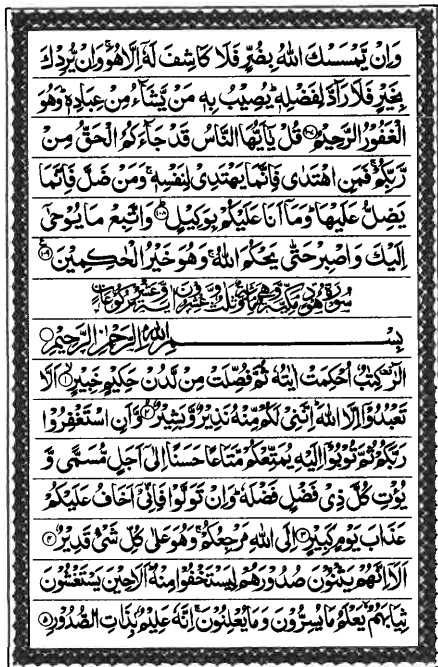 وَاِنْ يَّمْسَسْكَ اللّٰهُ بِضُرٍّ فَلَا كَاشِفَ لَهٗۤ اِلَّا هُوَ ۚ وَاِنْ يُّرِدْكَ
بِخَيْرٍ فَلَا رَآدَّ لِفَضْلِهٖ ؕ يُصِيْبُ بِهٖ مَنْ يَّشَآءُ مِنْ عِبَادِهٖ ؕ وَهُوَ
الْغَفُوْرُ الرَّحِيْمُ ﴿۱۰۷﴾ قُلْ يٰۤاَيُّهَا النَّاسُ قَدْ جَآءَكُمُ الْحَقُّ مِنْ
رَّبِّكُمْ ۚ فَمَنِ اهْتَدٰى فَاِنَّمَا يَهْتَدِىْ لِنَفْسِهٖ ۚ وَمَنْ ضَلَّ فَاِنَّمَا
يَضِلُّ عَلَيْهَا ۚ وَمَاۤ اَنَا عَلَيْكُمْ بِوَكِيْلٍ ؕ ﴿۱۰۸﴾ وَاتَّبِعْ مَا يُوْحٰۤى
اِلَيْكَ وَاصْبِرْ حَتّٰى يَحْكُمَ اللّٰهُ ۚ وَهُوَ خَيْرُ الْحٰكِمِيْنَ ﴿۱۰۹﴾
سُوْرَةُ هُوْدٍ مَّكِّيَّةٌ وَّهِىَ مِائَةٌ وَّثَلٰثٌ وَّعِشْرُوْنَ اٰيَةً وَّعَشْرُ رُكُوْعَاتٍ
بِسْمِ اللّٰهِ الرَّحْمٰنِ الرَّحِيْمِ
الٓرٰ ۫ كِتٰبٌ اُحْكِمَتْ اٰيٰتُهٗ ثُمَّ فُصِّلَتْ مِنْ لَّدُنْ حَكِيْمٍ خَبِيْرٍ ﴿۱﴾ اَلَّا
تَعْبُدُوْۤا اِلَّا اللّٰهَ ؕ اِنَّنِىْ لَكُمْ مِّنْهُ نَذِيْرٌ وَّبَشِيْرٌ ﴿۲﴾ وَّاَنِ اسْتَغْفِرُوْا
رَبَّكُمْ ثُمَّ تُوْبُوْۤا اِلَيْهِ يُمَتِّعْكُمْ مَّتَاعًا حَسَنًا اِلٰۤى اَجَلٍ مُّسَمًّى وَّ
يُؤْتِ كُلَّ ذِىْ فَضْلٍ فَضْلَهٗ ؕ وَاِنْ تَوَلَّوْا فَاِنِّىْۤ اَخَافُ عَلَيْكُمْ
عَذَابَ يَوْمٍ كَبِيْرٍ ﴿۳﴾ اِلَى اللّٰهِ مَرْجِعُكُمْ ۚ وَهُوَ عَلٰى كُلِّ شَىْءٍ قَدِيْرٌ ﴿۴﴾
اَلَاۤ اِنَّهُمْ يَثْنُوْنَ صُدُوْرَهُمْ لِيَسْتَخْفُوْا مِنْهُ ؕ اَلَا حِيْنَ يَسْتَغْشُوْنَ
ثِيَابَهُمْ ۙ يَعْلَمُ مَا يُسِرُّوْنَ وَمَا يُعْلِنُوْنَ ۚ اِنَّهٗ عَلِيْمٌۢ بِذَاتِ الصُّدُوْرِ ﴿۵﴾